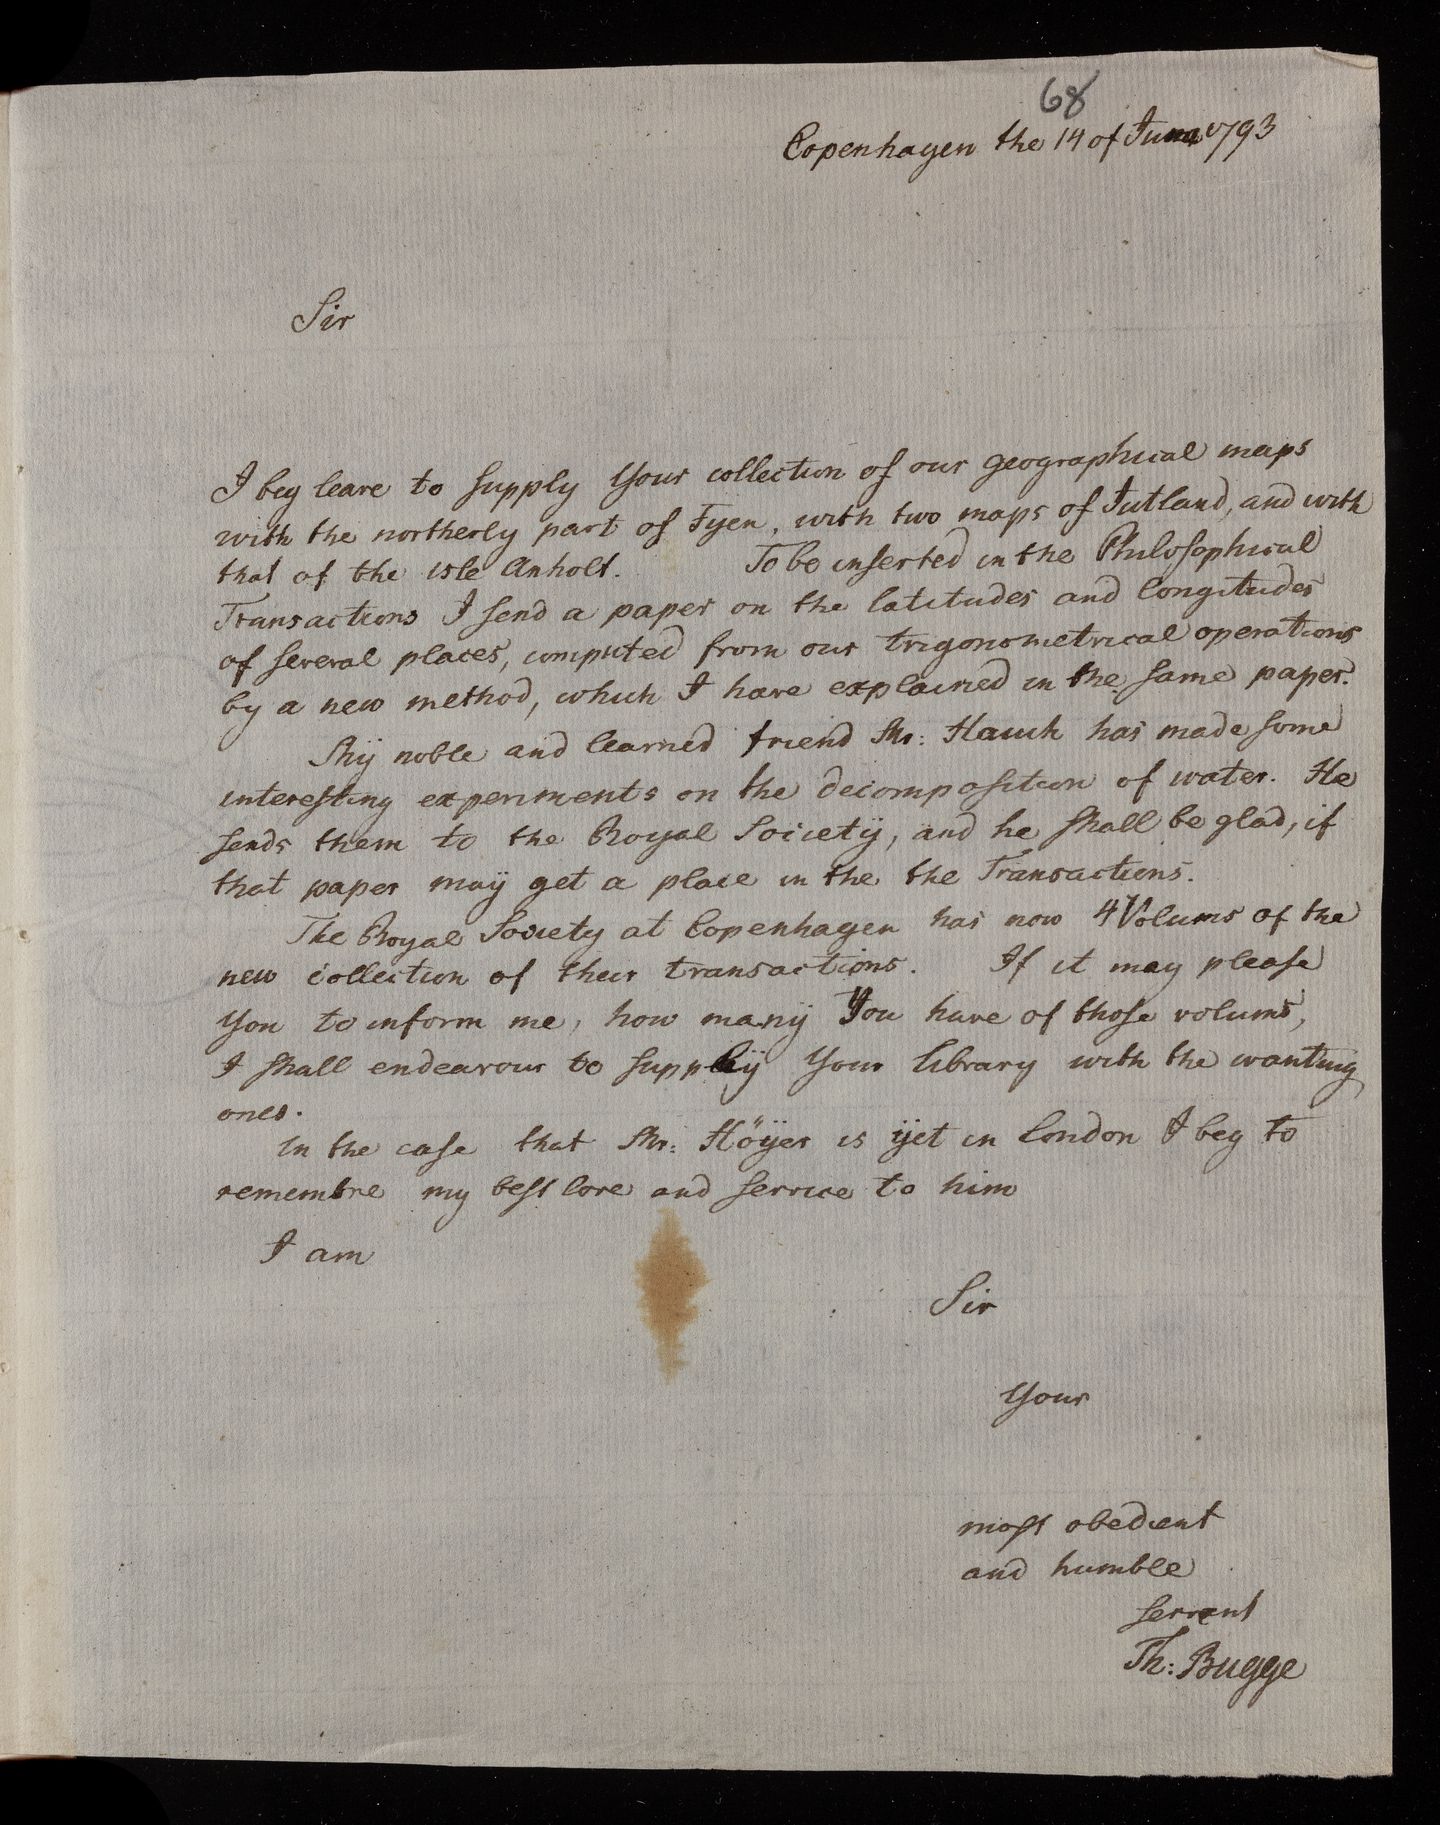 68
Copenhagen the 14 of June 1793
Sir
I beg leave to supply Your collection of our geographical maps
with the northerly part of Fyen, with two maps of Jutland, and with
that of the isle Anholt. To be inserted in the Philosophical
Transactions I send a paper on the latitudes and longitudes
of several places, computed from our trigonometrical operations
by a new method, which I have explained in the same paper.
Mÿ noble and learned friend Mr: Hauch has made some
interesting experiments on the decomposition of water. He
sends them to the Royal Societÿ, and he shall be glad, if
that paper maÿ get a place in the the Transactions.
The Royal Society at Copenhagen has now 4 Volums of the
new collection of their transactions. If it may please
You to inform me, how manÿ You have of those volums,
I shall endeavour to supplÿ Your library with the wanting
ones.
in the case that Mr: Höÿer is ÿet in London I beg to
remembre my best love and service to him
I am
Sir
Your
most obedient
and humble
servant
Th: Bugge